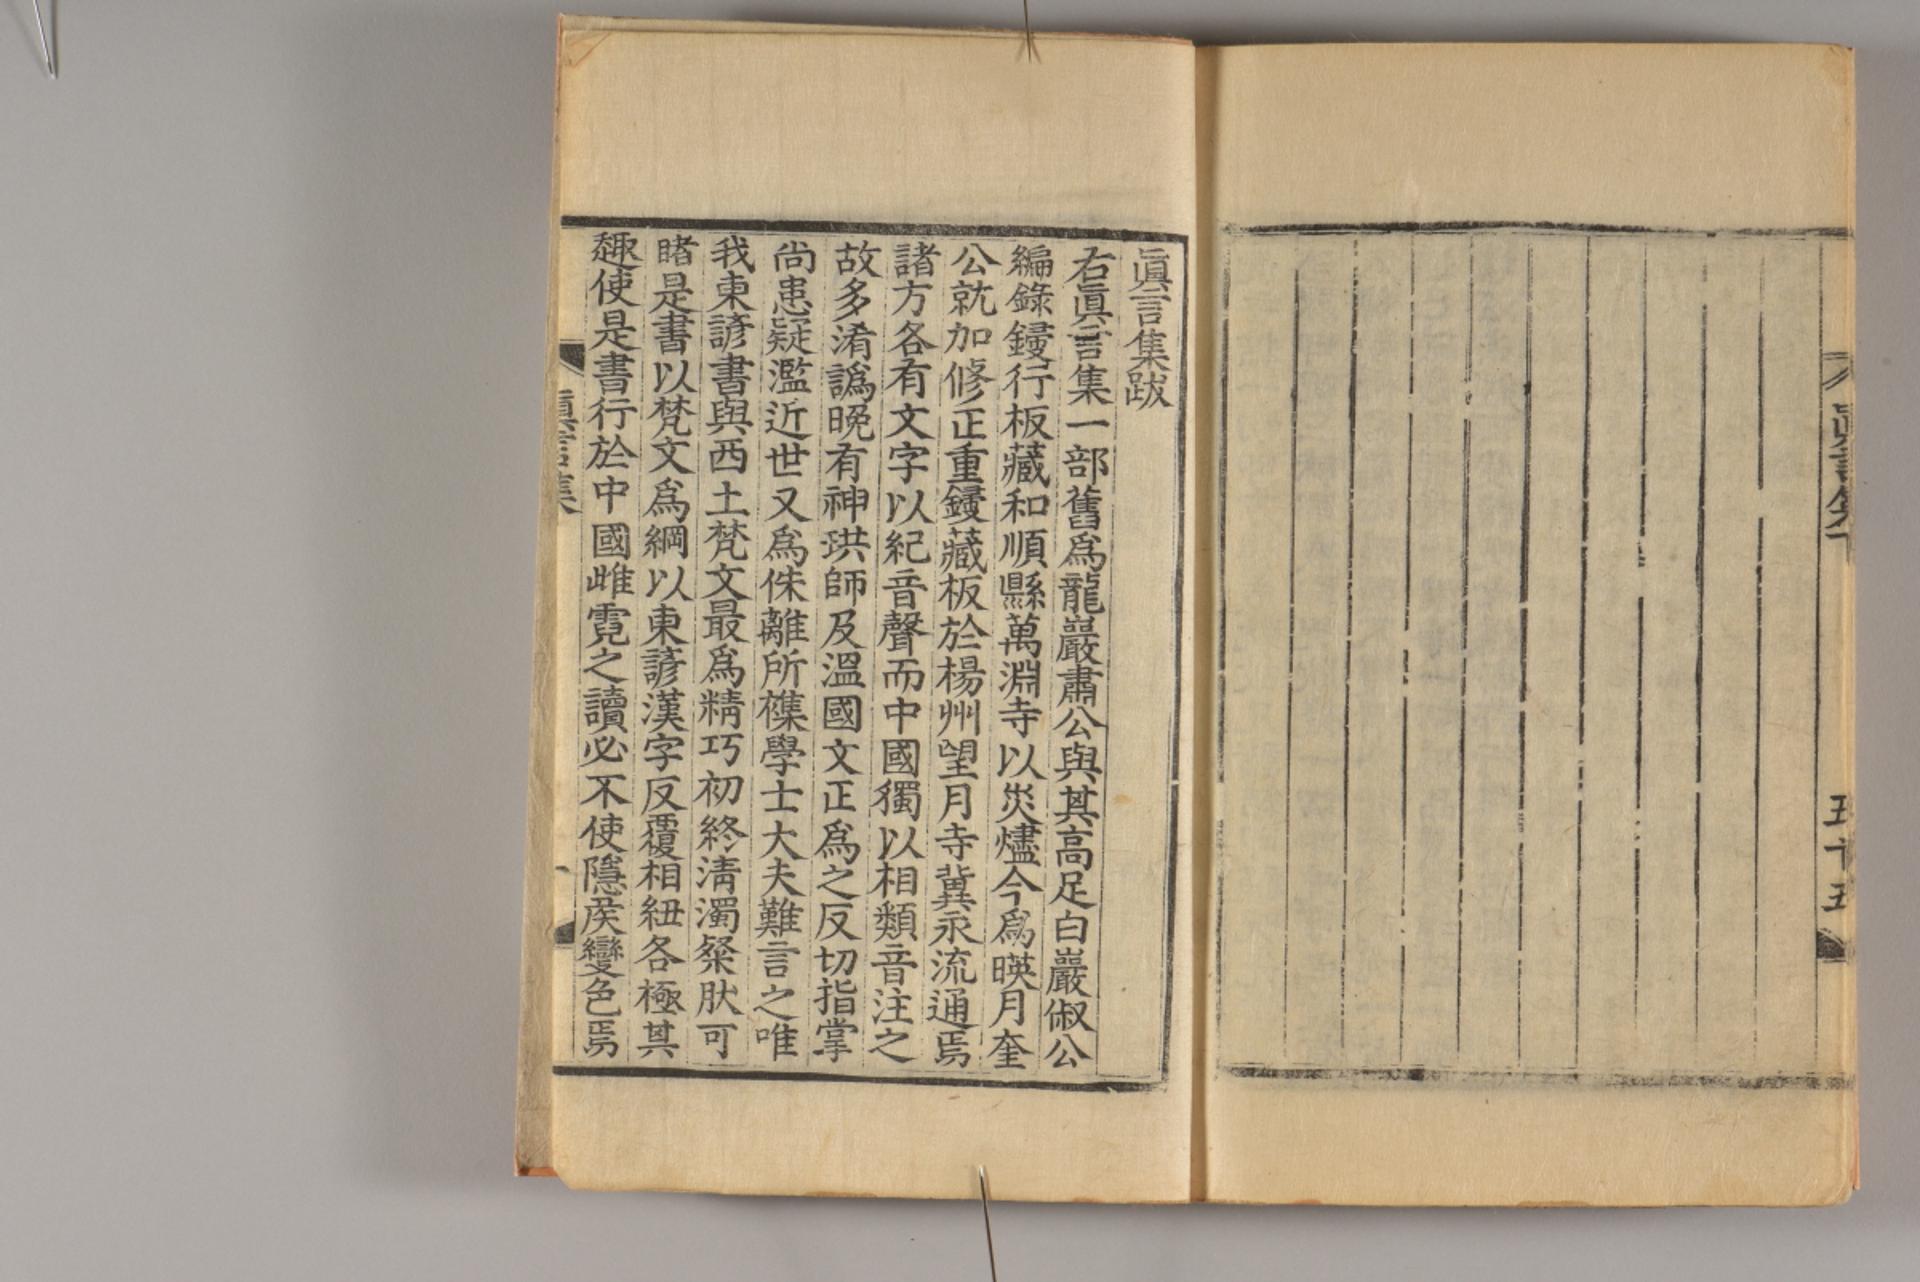 眞言集下
五十五
眞言集跋
右眞言集一部舊爲龍巖肅公與其高足白巖俶公
編錄鋟行板藏和順縣萬淵寺以災燼今爲暎月奎
公就加修正重鋟藏板於楊州望月寺冀永流通焉
諸方各有文字以紀音聲而中國獨以相類音注之
故多淆譌晩有神珙師及溫國文正爲之反切指掌
尙患疑濫近世又爲侏離所襍學士大夫難言之唯
我東諺書與西土梵文最爲精巧初終淸濁粲肰可
睹是書以梵文爲綱以東諺漢字反覆相紐各極其
趣使是書行於中國雌霓之讀必不使隱矦變色焉
眞言集